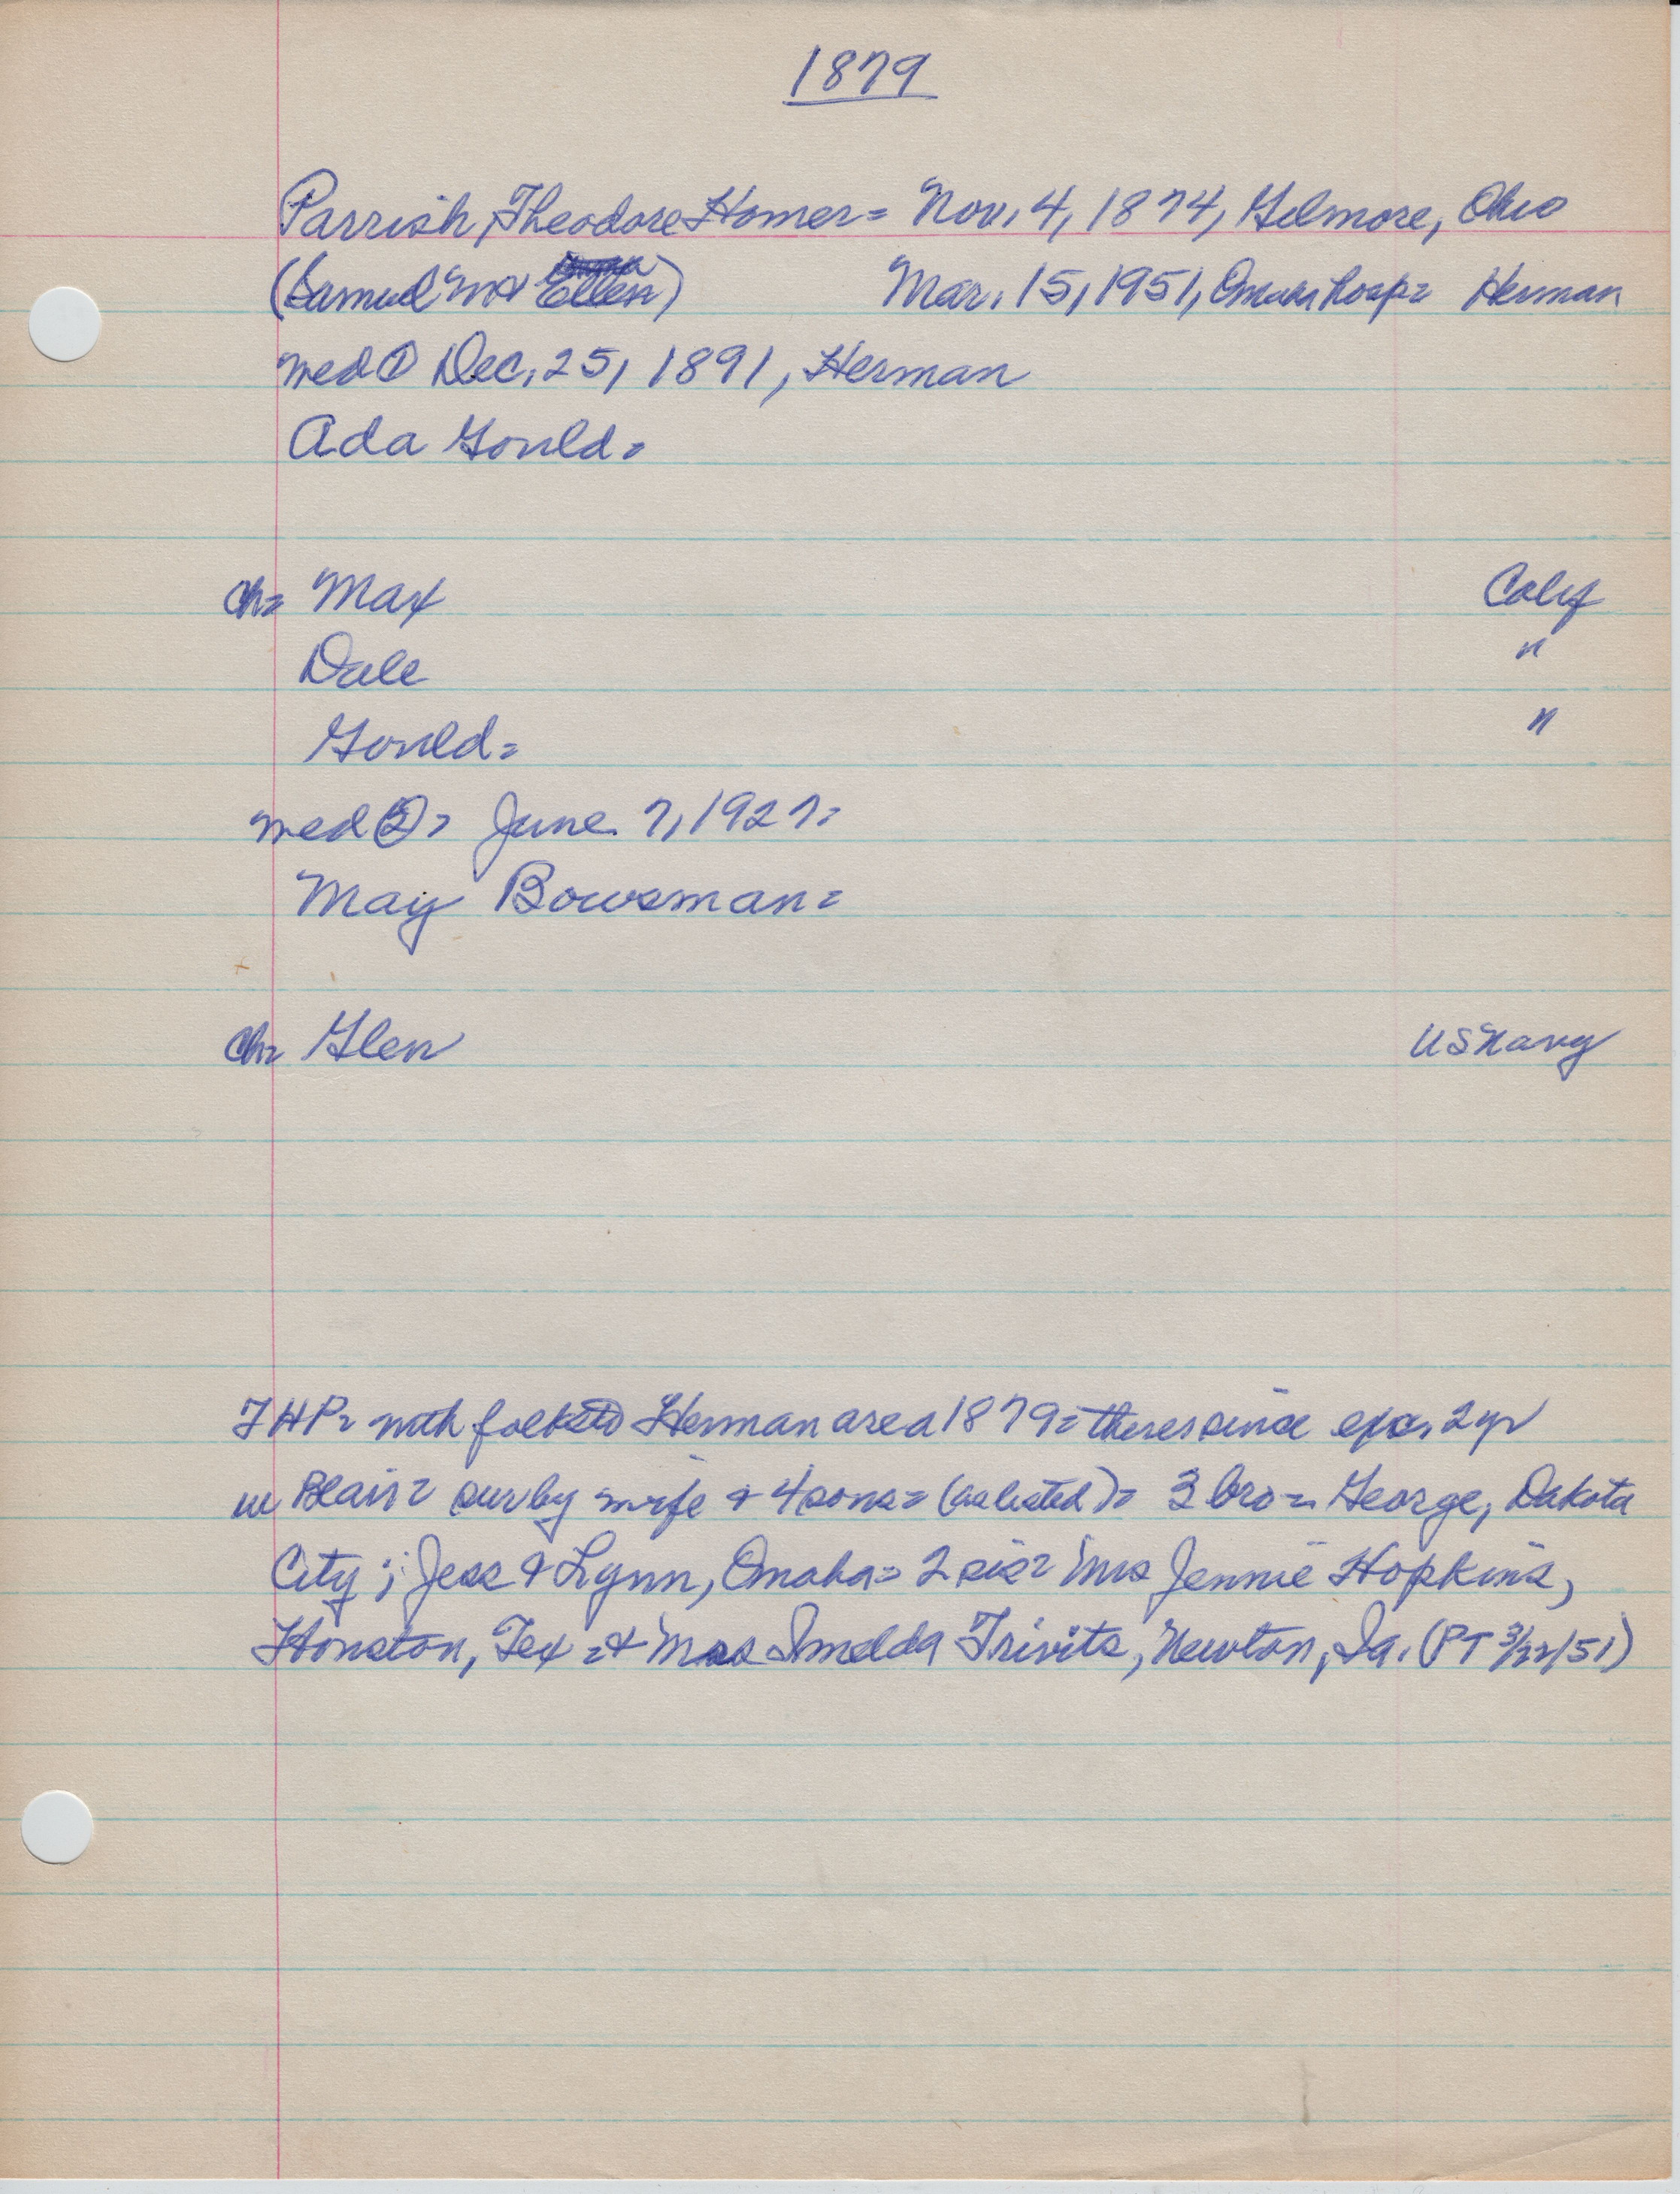 1879
Parrish, Theodore Homer = Nov. 4, 1874, Gilmore, Ohio
(Samuel M & Ellen) Mar. 15, 1951, Omaha hosp = Herman
med ① Dec. 25, 1891, Herman
Ada Gould =
Ch = Max Calif
Dale "
Gould = "
med ② = June 7, 1927 =
May Bowsman =
Ch = Glen US Navy
THP = with folks to Herman area 1879 = there since exc. 2 yr
in Blair = sur by wife & 4 sons = (as listed) = 3 bro = George, Dakota
City; Jess & Lynn, Omaha = 2 sis = Mrs Jennie Hopkins,
Houston, Tex = & Mrs Imelda Trivits, Newton, Ia. (PT 3/22/51)